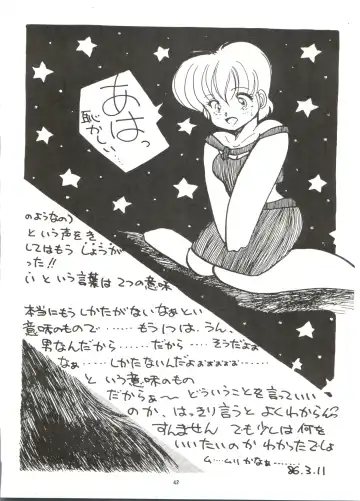 あはっ
恥かしい…
のようなの)
という声をき
してはもうしょうが
った!!
いという言葉は2つの意味
本当にもうしかたがないなぁとい
意味のもので……もう1つは、うん、
男なんだから……だから…そうだよぉ
なぁ……しかたないんだよぉぉぉぉぉ……
という意味のもの
だからぁ〜どういうことを言ってい
のか、はっきり言うとよくわからん
すんません でも少しは何を
いいたいのかわかったでしょ
ム…ムリかなぁ……
86.3.11
42